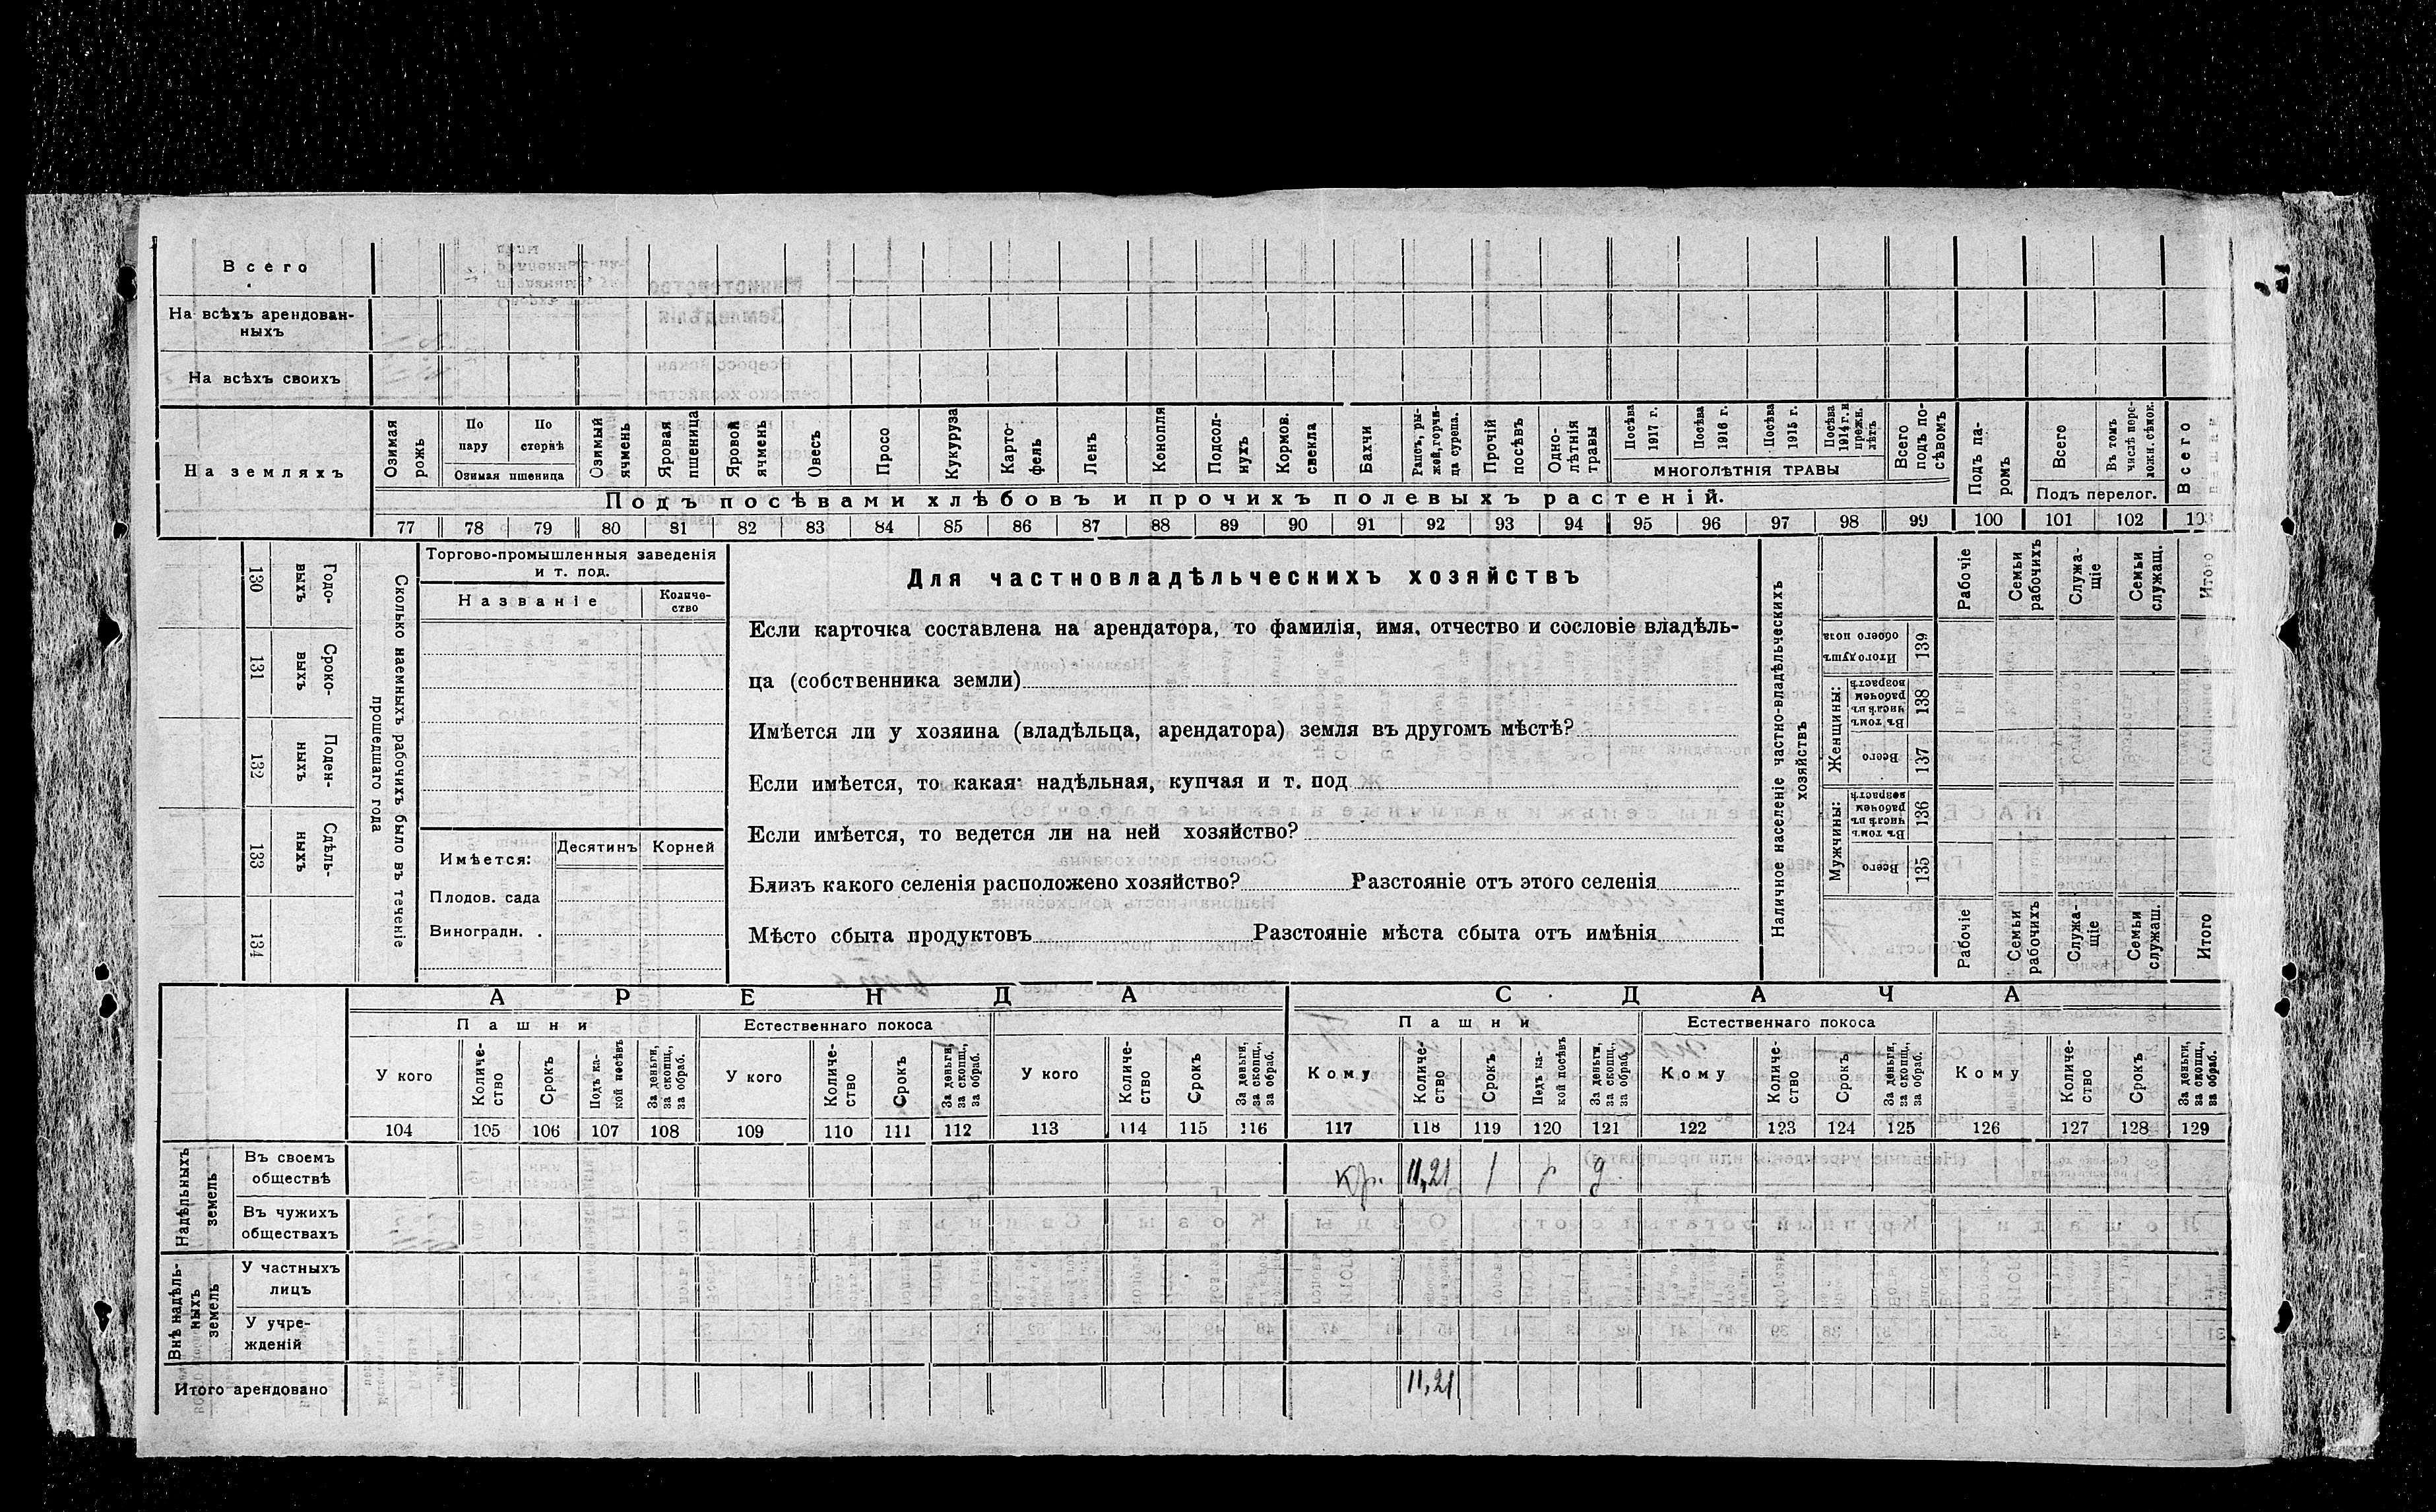 Всего
На всѣхъ арендован-
ныхъ
На всѣхъ своихъ
На земляхъ
Озимая рожь
По пару
По стернѣ
Озимая пшеница
Озимый ячмень
Яровая пшеница
Яровой ячмень
Овесъ
Просо
Кукуруза
Карто-
фель
Ленъ
Конопля
Подсол-
нухъ
Кормов. свекла
Бахчи
Рапсъ, ры-
жей, горчи-
ца сурепа.
Прочій посѣвъ
Одно-
лѣтнія травы
Посѣва 1917 г.
Посѣва 1916 г.
Посѣва 1915 г.
Посѣва 1914 г. и прежн. лѣтъ
МНОГОЛѢТНІЯ ТРАВЫ
Всего подъ по-
сѣвомъ
Подъ па-
ромъ
Всего
Въ томъ числѣ пере-
ложн. сѣнок.
Подъ перелог.
Всего
Подъ посѣвами хлѣбовъ и прочихъ полевыхъ растеній.
77 78 79 80 81 82 83 84 85 86 87 88 89 90 91 92 93 94 95 96 97 98 99 100 101 102 103
130 Годо-
выхъ
131 Сроко-
выхъ
132 Поден-
ныхъ
133 Сдѣль-
ныхъ
134
Сколько наемныхъ рабочихъ было въ теченіе
прошедшаго года
Торгово-промышленныя заведенія
и т. под.
Названіе
Количе-
ство
Имѣется:
Десятинъ
Корней
Плодов. сада
Виноградн. .
Для частновладѣльческихъ хозяйствъ
Если карточка составлена на арендатора, то фамилія, имя, отчество и сословіе владѣль-
ца (собственника земли)
Имѣется ли у хозяина (владѣльца, арендатора) земля въ другомъ мѣстѣ?
Если имѣется, то какая: надѣльная, купчая и т. под
Если имѣется, то ведется ли на ней хозяйство?
Близъ какого селенія расположено хозяйство? Разстояніе отъ этого селенія
Мѣсто сбыта продуктовъ Разстояніе мѣста сбыта отъ имѣнія
Наличное населеніе частно-владѣльческихъ
хозяйствъ
Рабочіе
Семьи рабочихъ
Служа-
щіе
Семьи служащ.
Итого
Итого душъ обоего пола
139
Женщины:
Въ томъ числѣ въ рабочемъ возрастѣ
138
Всего
137
Мужчины:
Въ томъ числѣ въ рабочемъ возрастѣ
136
Всего
135
Рабочіе
Семьи рабочихъ
Служа-
щіе
Семьи служаш.
Итого
АРЕНДА
СДАЧА
Пашни
Естественнаго покоса
Пашни
Естественнаго покоса
У кого
Количе-
ство
Срокъ
Подъ ка-
кой посѣвъ
За деньги, за скопщ., за обраб.
У кого
Количе-
ство
Срокъ
За деньги, за скопщ., за обраб.
У кого
Количе-
ство
Срокъ
За деньги, за скопщ., за обраб.
Кому
Количе-
ство
Срокъ
Подъ ка-
кой посѣвъ
За деньги, за скопщ., за обраб.
Кому
Количе-
ство
Срокъ
За деньги, за скопщ., за обраб.
Кому
Количе-
ство
Срокъ
За деньги, за скопщ., за обраб.
104 105 106 107 108 109 110 111 112 113 114 115 116 117 118 119 120 121 122 123 124 125 126 127 128 129
Надѣльныхъ
земель
Въ своемъ
обществѣ
кр. 11,21 1 г д
Въ чужихъ
обществахъ
Внѣ надѣль-
ныхъ
земель
У частныхъ
лицъ
У учре-
жденій
Итого арендовано
11,21